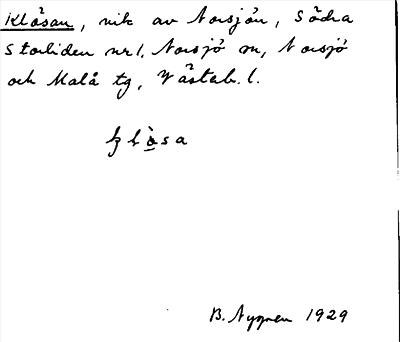 Klåsan, vik av Norsjön, Södra
Storliden nr 1, Norsjö sn, Norsjö
och Malå tg, Västerb. l.
B. Nygren 1929